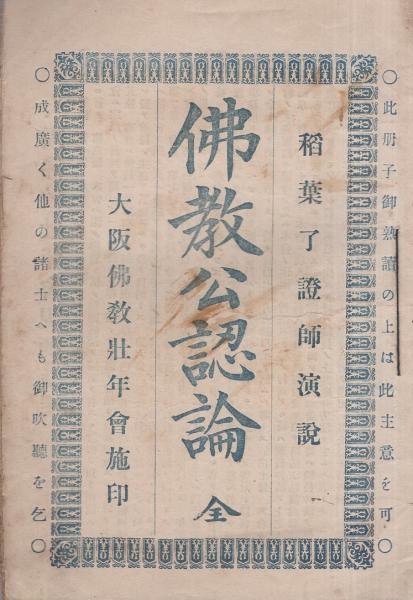 ○此册子御熟讀の上は此主意を可○
稻葉了證師演説
佛教公認論 全
大阪佛教壯年會施印
○成廣く他の諸士へも御吹聽を乞○